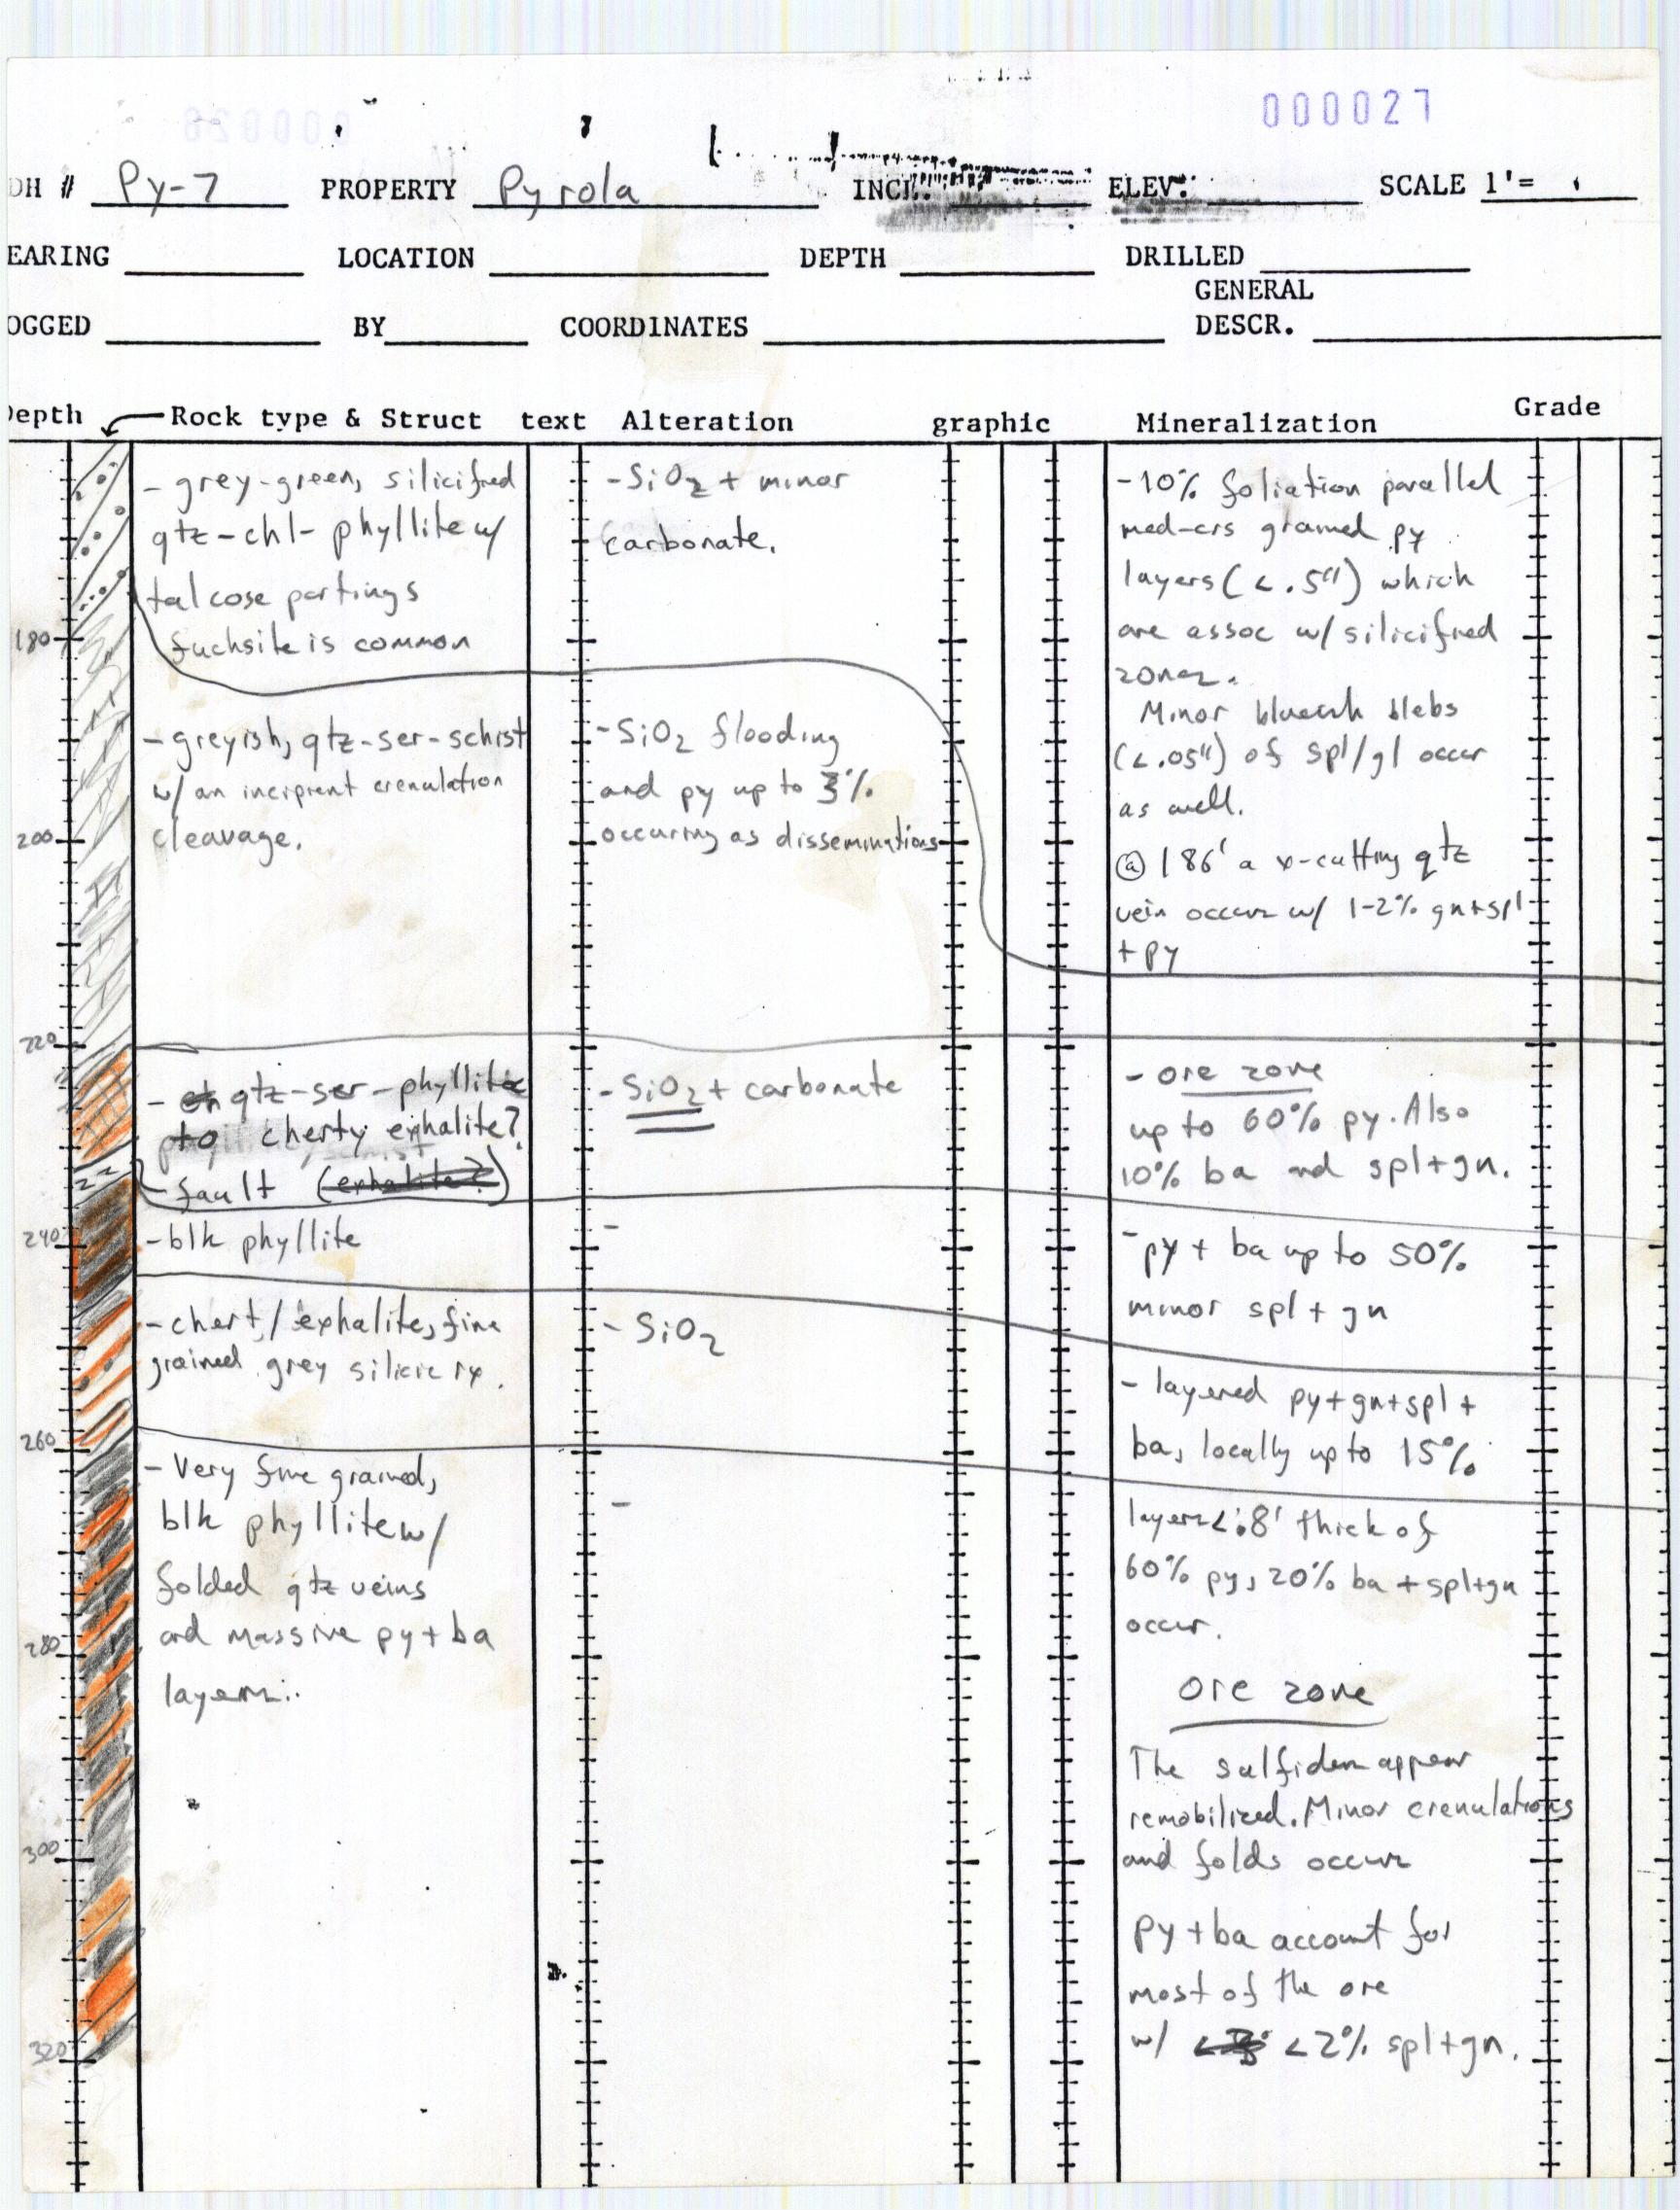 000027
DH # Py-7 PROPERTY Pyrola INCL. ELEV. SCALE 1'=
EARING LOCATION DEPTH DRILLED
GENERAL
OGGED BY COORDINATES DESCR.
Depth Rock type & Struct text Alteration graphic Mineralization Grade
- grey-green, silicified
qtz-chl- phyllite w/
talcose partings
fuchsite is common
- SiO2 + minor
carbonate.
- 10% foliation parallel
med-crs grained py
layers (<.5") which
are assoc w/ silicified
zones.
Minor blueish blebs
(<.05") of spl/gl occur
as well.
@ 186' a x-cutting qtz
vein occurs w/ 1-2% gn+spl
+ py
180
- greyish, qtz-ser-schist
w/ an incipient crenulation
cleavage.
- SiO2 flooding
and py up to 3%
occuring as disseminations
200
220
- qtz-ser-phyllite
to cherty exhalite?
- fault (exhalite?)
- SiO2 + carbonate
- ore zone
up to 60% py. Also
10% ba and spl+gn.
240
- blk phyllite
-
- py + ba up to 50%
minor spl + gn
- chert/exhalite, fine
grained grey silicic rx.
- SiO2
- layered py+gn+spl+
ba, locally up to 15%
260
- Very fine grained,
blk phyllite w/
folded qtz veins
and massive py+ba
layers..
-
layers <.8' thick of
60% py, 20% ba + spl+gn
occur.
280
ore zone
The sulfides appear
remobilized. Minor crenulations
and folds occur
300
py + ba account for
most of the ore
w/ <2% spl+gn.
320